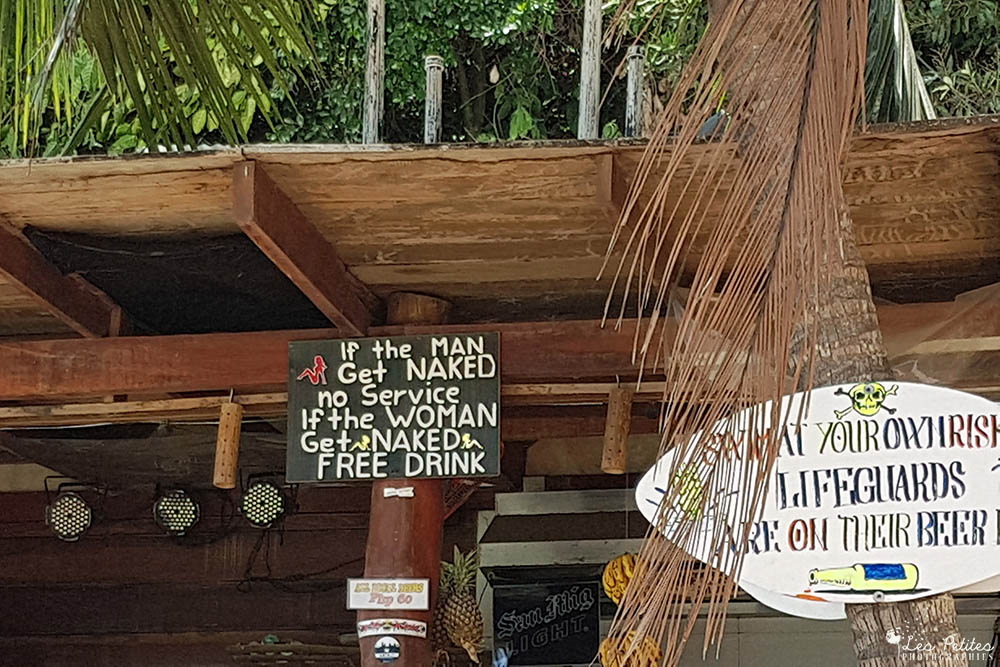 If the MAN
Get NAKED
no Service
If the WOMAN
Get NAKED
FREE DRINK
AT YOUR OWN RISK
LIFEGUARDS
ARE ON THEIR BEER
Php 60
San Mig
LIGHT
Les Petites
PHOTOGRAPHIES